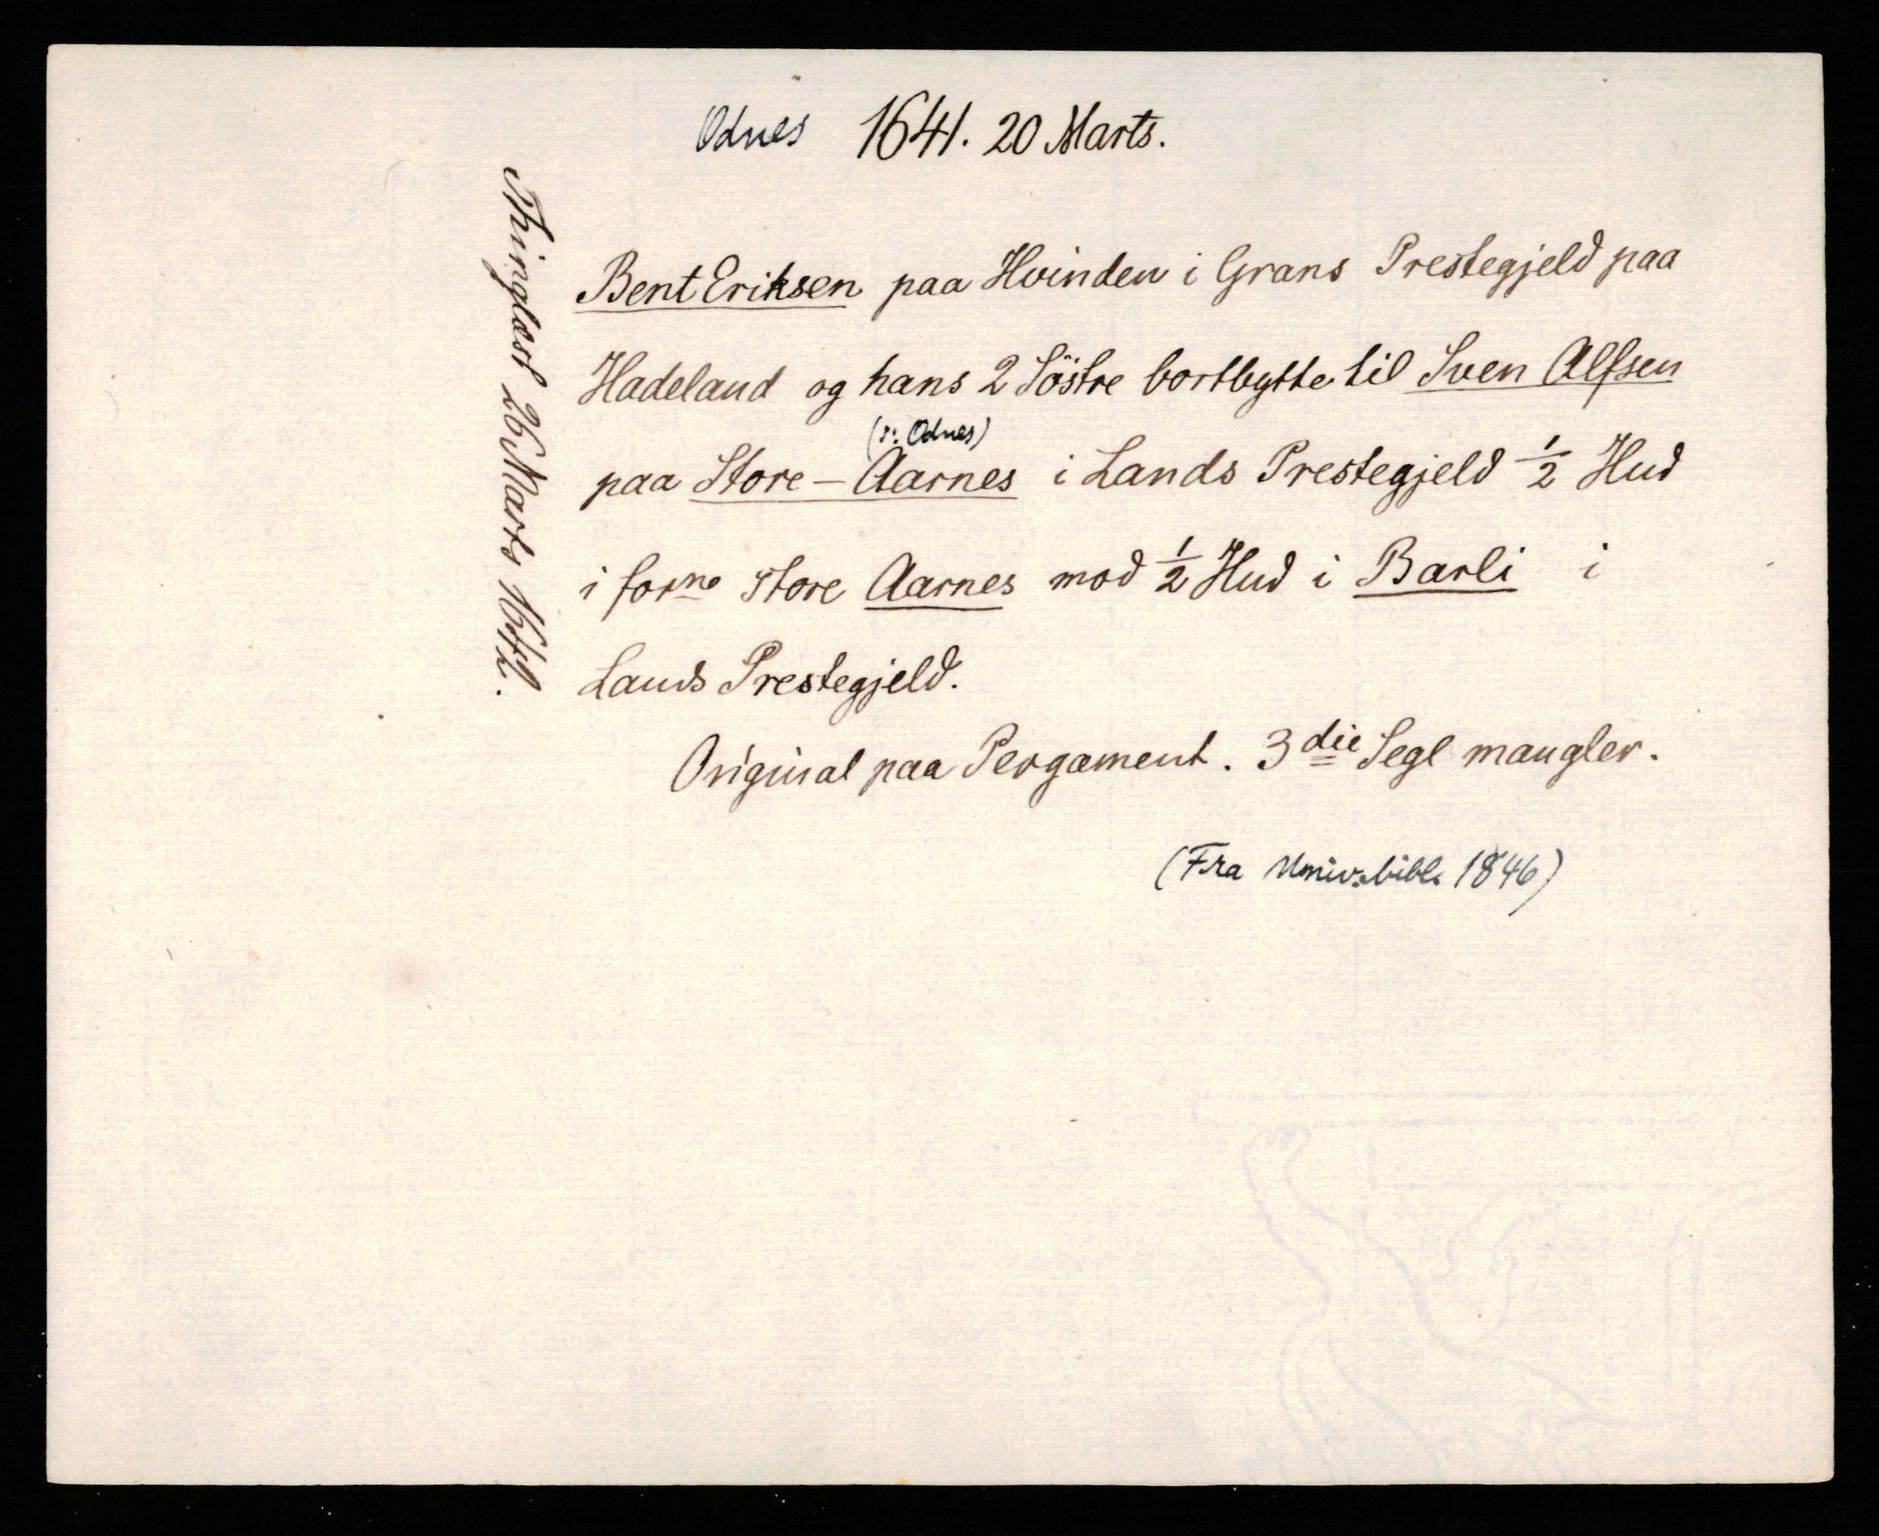 Odnes 1641. 20 Marts.
Bent Eriksen paa Hvinden i Grans Prestegjeld paa
Hadeland og hans 2 Söstre bortbytte til Sven Alfsen
(ɔ: Odnes)
paa Store-Aarnes i Lands Prestegjeld ½ Hud
i forne Store Aarnes mod ½ Hud i Barli i
Lands Prestegjeld.
Original paa Pergament. 3die Segl mangler.
(Fra Univ.bibl. 1846)
Thinglæst 26 Marts 1642.